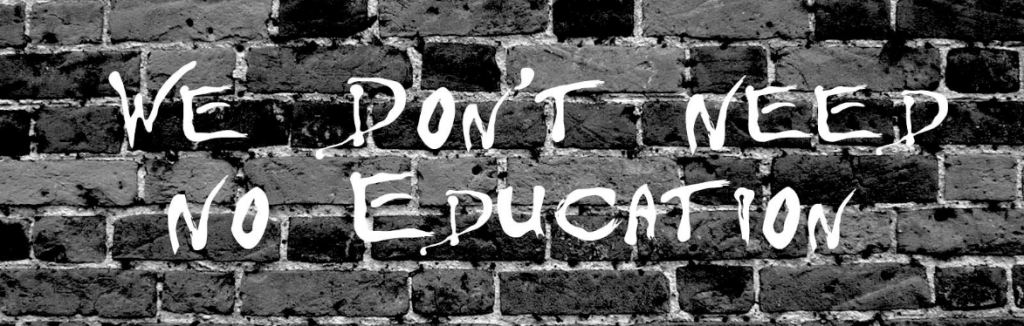 WE DON'T NEED
NO EDUCATION